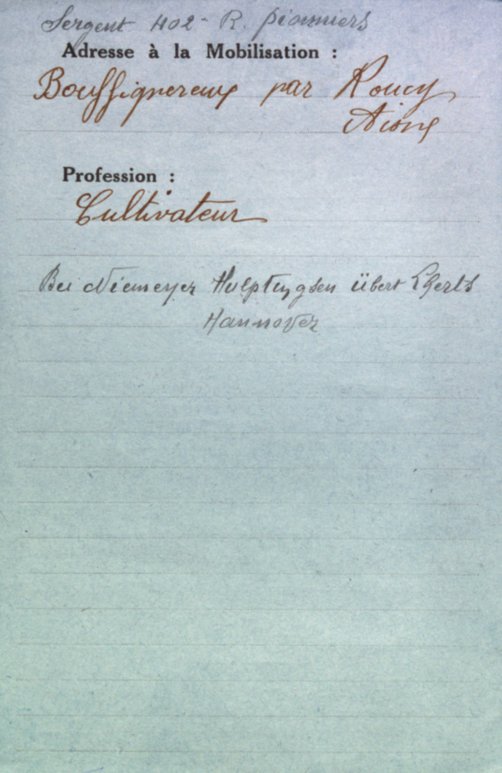 Sergent 402e R. pionniers
Adresse à la Mobilisation :
Bouffignereux par Roucy
Aisne
Profession :
Cultivateur
Bei Niemeyer über
Hannover